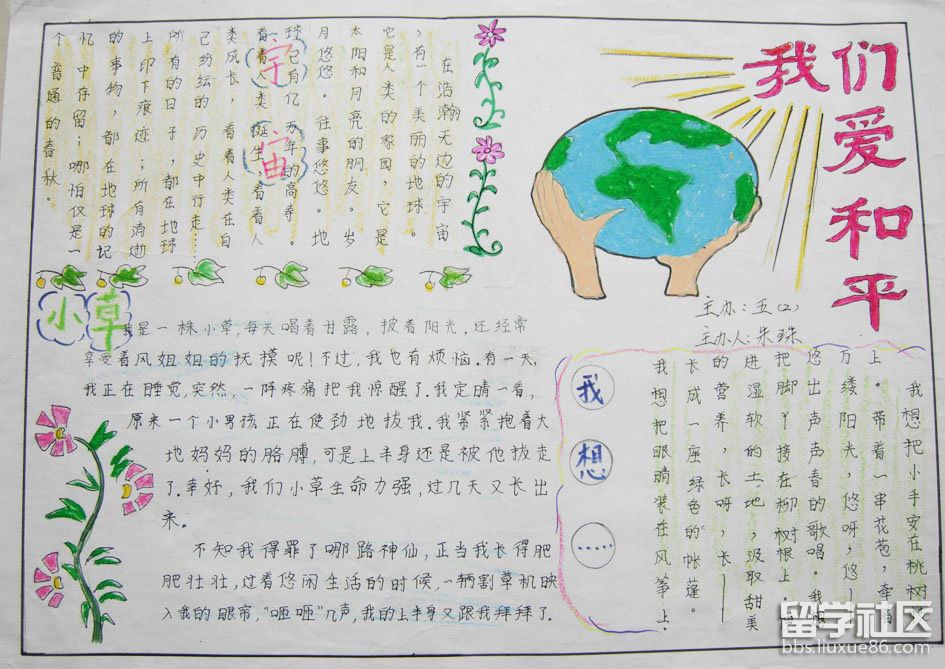 我们
爱
和
平
主办：五(2)
主办人：朱珠
宇
宙
在浩瀚无边的宇宙
，有一个美丽的地球。
它是人类的家园，它是
太阳和月亮的朋友。岁
月悠悠。往事悠悠。地
球已有亿万年的高寿。
看着人类诞生，看着人
类成长，看着人类在自
己纷纭的历史中行走……
所有的日子，都在地球
上印下痕迹；所有消逝
的事物，都在地球的记
忆中存留；哪怕仅是一
个普通的春秋。
小草
我是一株小草，每天喝着甘露，披着阳光，还经常
享受着风姐姐的抚摸呢！不过，我也有烦恼。有一天，
我正在睡觉，突然，一阵疼痛把我惊醒了。我定睛一看，
原来一个小男孩正在使劲地拔我。我紧紧抱着大
地妈妈的胳膊，可是上半身还是被他拔走
了。幸好，我们小草生命力强，过几天又长出
来。
不知我得罪了哪路神仙，正当我长得肥
肥壮壮，过着悠闲生活的时候，一辆割草机映
入我的眼帘，“咂咂”几声，我的上半身又跟我拜拜了。
我
想
……
我想把小手安在桃树
上。带着一串花苞，牵
万缕阳光，悠呀，悠——
悠出声声春的歌唱。我
把脚丫接在柳树根上
进湿软的土地，汲取甜美
的营养，长呀，长——
长成一座绿色的帐蓬。
我想把眼睛装在风筝上
留学社区
bbs.liuxue86.com